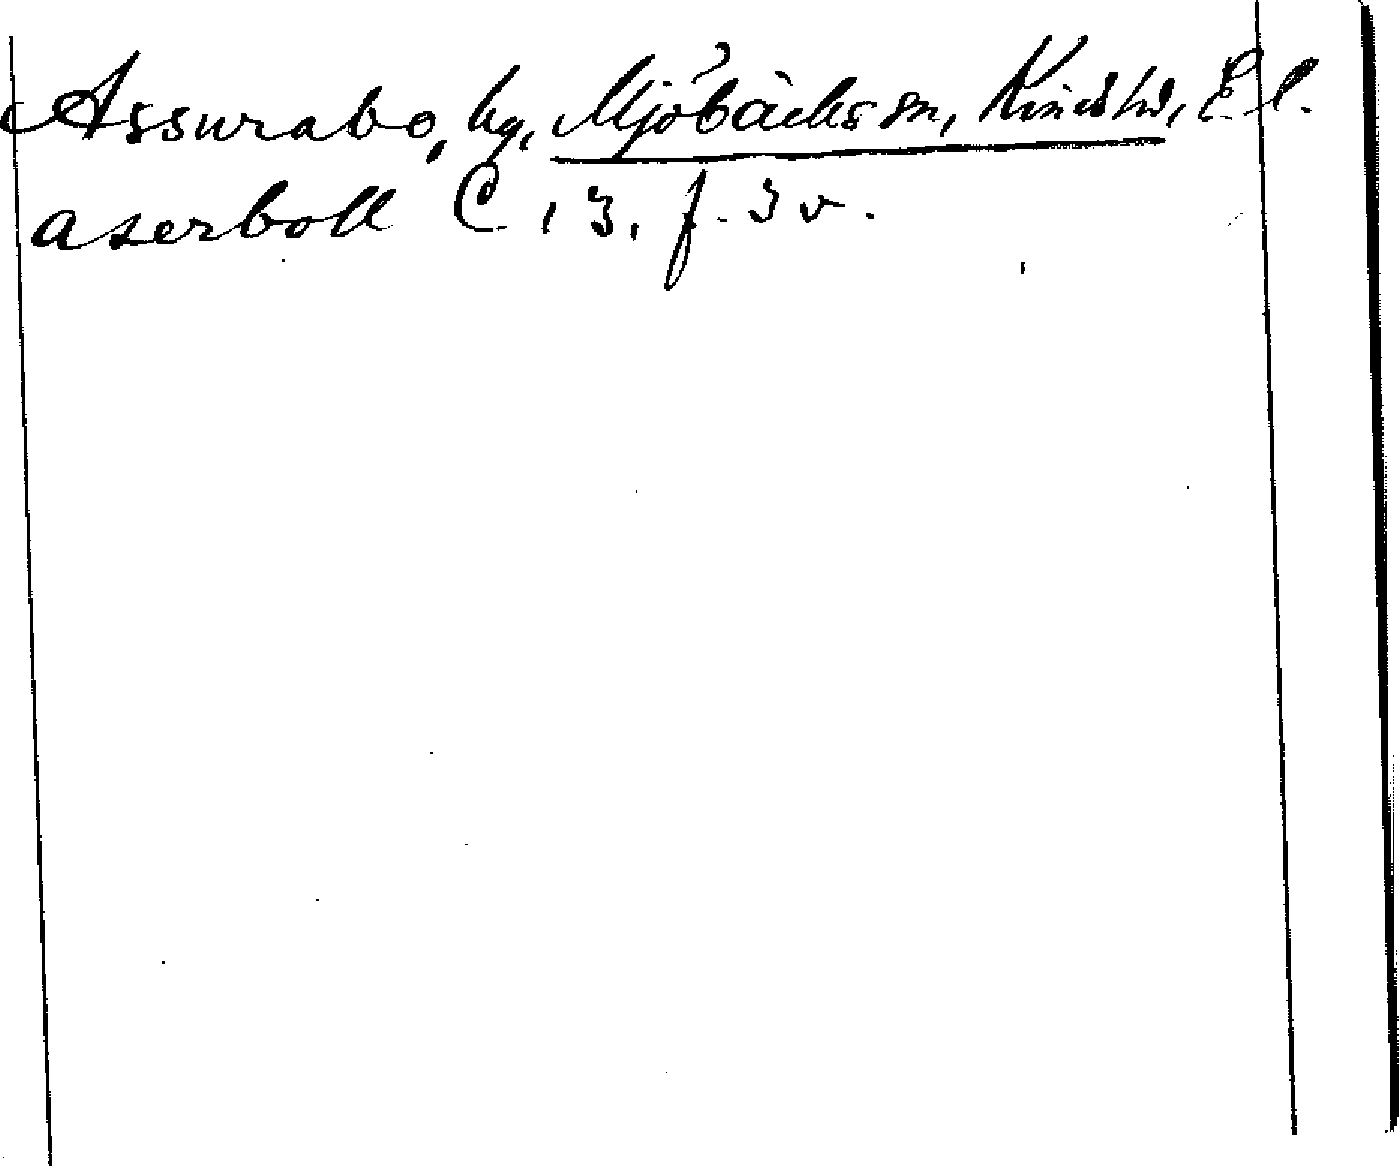 Assurabo, hg, Mjöbäcks sn, Kinds hd, El.
aserboll C. 13. f. 3 v.